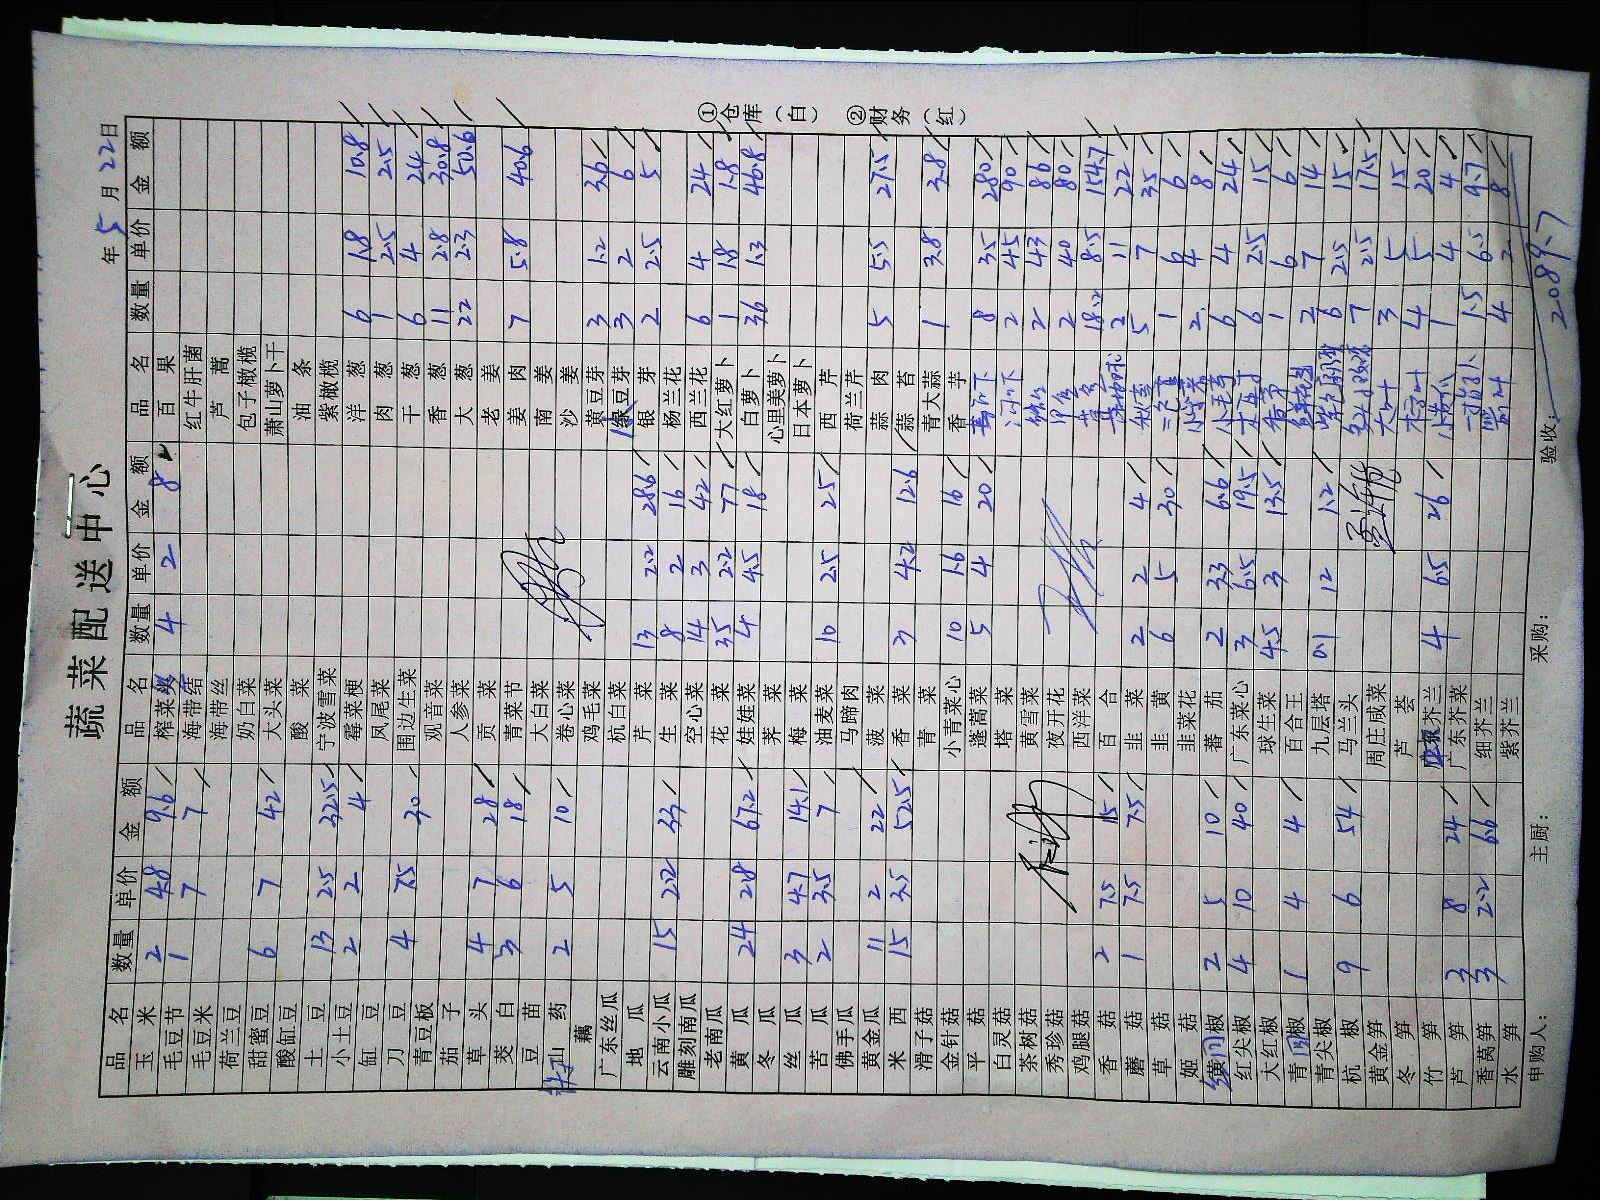 蔬菜配送中心
年 5 月 22 日
品名 数量 单价 金额 品名 数量 单价 金额 品名 数量 单价 金额
玉米 2 4.8 9.6 榨菜头 4 2 8 百果
毛豆节 1 7 7 海带结 红牛肝菌
毛豆米 海带丝 芦蒿
荷兰豆 奶白菜 包子橄榄
甜蜜豆 6 7 42 大头菜 萧山萝卜干
酸缸豆 酸菜 油条
土豆 13 2.5 32.5 宁波雪菜 紫橄榄
小土豆 2 2 4 霉菜梗 洋葱 6 1.8 10.8
缸豆 凤尾菜 肉葱 1 25 25
刀豆 4 7.5 30 围边生菜 干葱 6 4 24
青豆板 观音菜 香葱 11 2.8 30.8
茄子 人参菜 大葱 22 2.3 50.6
草头 4 7 28 贡菜 老姜
茭白 3 6 18 青菜节 姜肉 7 5.8 40.6
豆苗 大白菜 南姜
山药 2 5 10 卷心菜 沙姜
藕 鸡毛菜 黄豆芽 3 1.2 3.6
广东丝瓜 杭白菜 绿豆芽 3 2 6
地瓜 芹菜 13 2.2 28.6 银芽 2 2.5 5
云南小瓜 15 2.2 33 生菜 8 2 16 杨兰花
雕刻南瓜 空心菜 14 3 42 西兰花 6 4 24
老南瓜 花菜 35 2.2 77 大红萝卜 1 1.8 1.8
黄瓜 24 2.8 67.2 娃娃菜 4 4.5 18 白萝卜 36 1.3 46.8
冬瓜 荠菜 心里美萝卜
丝瓜 3 4.7 14.1 梅菜 日本萝卜
苦瓜 2 3.5 7 油麦菜 10 2.5 25 西芹
佛手瓜 马蹄肉 荷兰芹
黄金瓜 11 2 22 菠菜 蒜肉 5 5.5 27.5
米西 15 3.5 52.5 香菜 3 4.2 12.6 蒜苔
滑子菇 青菜 青大蒜 1 3.8 3.8
金针菇 小青菜心 10 1.6 16 香芋
平菇 蓬蒿菜 5 4 20 8 35 280
白灵菇 塔菜 2 45 90
茶树菇 黄雪菜 2 43 86
秀珍菇 夜开花 2 40 80
鸡腿菇 西洋菜 18.2 8.5 154.7
香菇 2 7.5 15 百合 2 11 22
蘑菇 1 7.5 7.5 韭菜 2 2 4 5 7 35
草菇 韭黄 6 5 30 1 6 6
姬菇 韭菜花 2 4 8
红圆椒 2 5 10 蕃茄 2 3.3 6.6 6 4 24
红尖椒 4 10 40 广东菜心 3 6.5 19.5 6 2.5 15
大红椒 球生菜 4.5 3 13.5 1 6 6
青圆椒 1 4 4 百合王 2 7 14
青尖椒 九层塔 0.1 12 1.2 6 2.5 15
杭椒 9 6 54 马兰头 7 2.5 17.5
黄金笋 周庄咸菜 3 5 15
冬笋 芦荟 4 5 20
竹笋 芥兰 4 6.5 26 1 4 4
芦笋 3 8 24 广东芥菜 1.5 6.5 9.7
香莴笋 3 2.2 6.6 细芥兰 4 2 8
水笋 紫芥兰
申购人： 主厨： 采购： 验收： 2089.7
①仓库（白） ②财务（红）